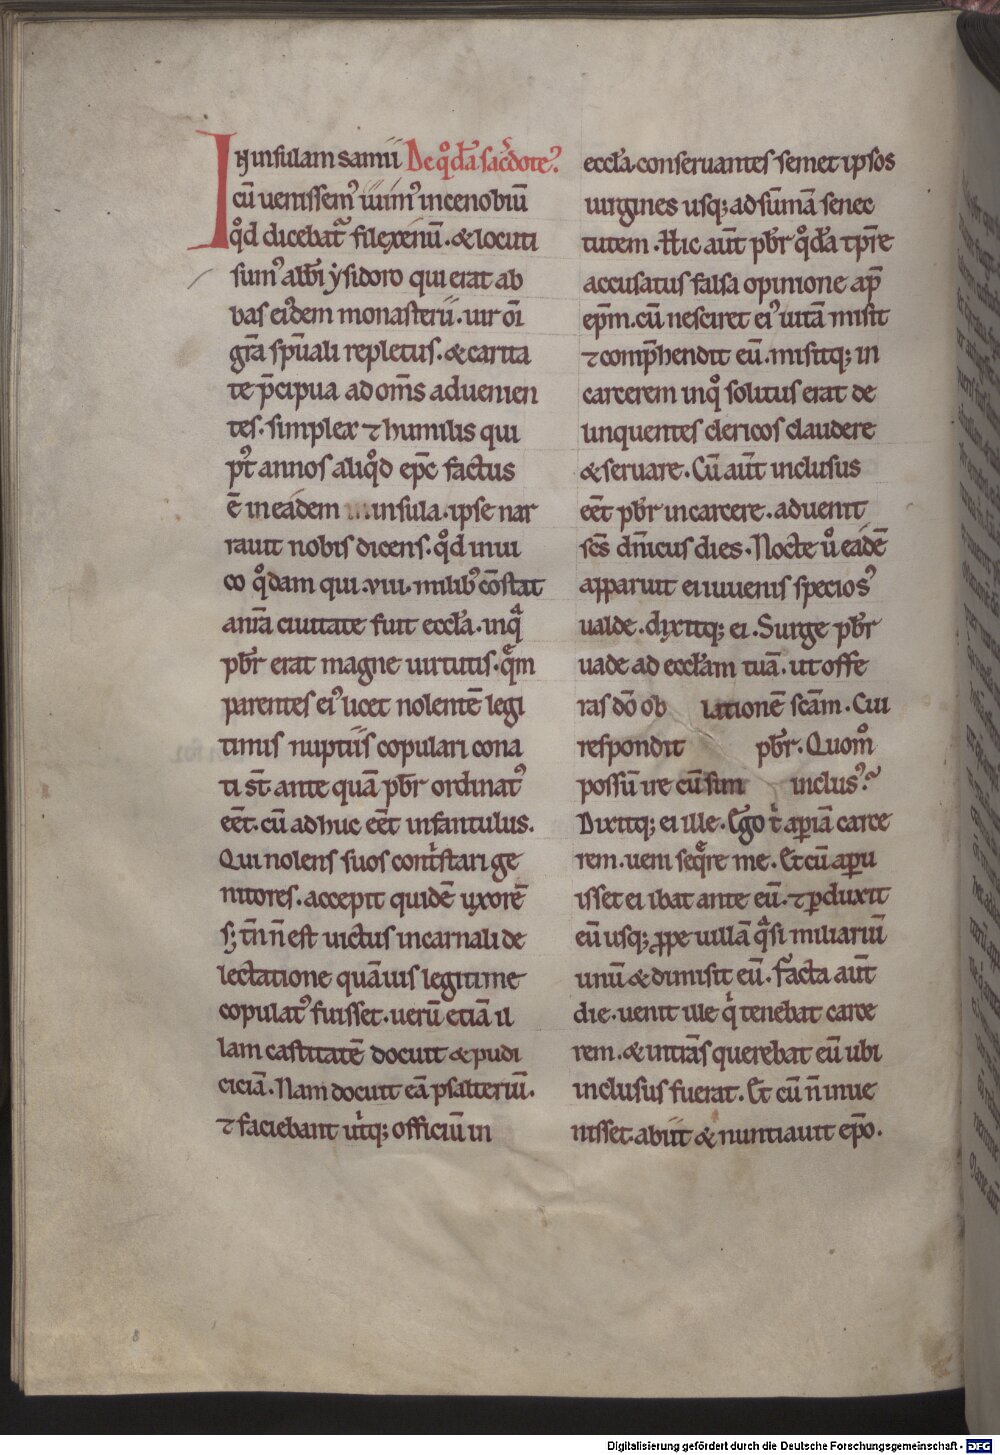 In insulam samii De qͦdā sac̄dote.
cū venissemꝰ iuimꝰ in cenobiū
qͦd dicebat᷑ filexenū. & locuti
sumꝰ abb̄i ẏsidoro qui erat ab
bas eiꝰdem monasterii. uir oī
gr̄a sp̄uali repletus. & carita
te p̄cipua ad om̄s aduenien
tes. simplex ⁊ humilis qui
pꝰt annos aliqͦd ep̄c factus
ē in eadem insula. ipse nar
rauit nobis dicens. qͦd in ui
co qͦdam qui .viii. milibꝰ cōstat
an̄ia ciuitate fuit eccl̄a. in qͣ
pb̄r erat magne uirtutis. qͣm
parentes eiꝰ licet nolentē legi
timis nuptiis copulari cona
ti st̄ ante quā pb̄r ordinatꝰ
eēt. cū adhuc eēt infantulus.
Qui nolens suos contͥstari ge
nitores. accepit quidē uxorē
sꝫ tn̄ n̄ est uictus in carnali de
lectatione quāuis legitime
copulatꝰ fuisset. uerū etiā il
lam castitatē docuit & pudi
ciciā. Nam docuit eā psalteriū.
⁊ faciebant utͥqꝫ officiū in
eccl̄a conseruantes semet ipsos
uirgines usqꝫ ad sūmā senec
tutem. Hic aūt pb̄r qͦdā tp̄re
accusatus falsa opinione ap̄
ep̄m. cū nesciret eiꝰ uitā misit
⁊ comp̄hendit eū. misitqꝫ in
carcerem in qͦ solitus erat de
linquentes clericos claudere
& seruare. Cū aūt inclusus
eēt pb̄r in carcere. aduenit
sc̄s dn̄icus dies. Nocte uͦ eadē
apparuit ei iuuenis speciosꝰ
ualde. dixitqꝫ ei. Surge pb̄r
uade ad eccl̄am tuā. ut offe
ras dō ob lationē sc̄am. Cui
respondit pb̄r. Quomͦ
possū ire cū sim inclusꝰ?
Dixitqꝫ ei ille. Ego tͥ aperiā carce
rem. ueni seq̄re me. Et cū aperu
isset ei ibat ante eū. ⁊ ꝑduxit
eū usqꝫ ꝓpe uillā qͣsi miliariū
unū & dimisit eū. Facta aūt
die. uenit ille qͥ tenebat carce
rem. & intrās querebat eū ubi
inclusus fuerat. Et cū n̄ inue
nisset. abiit & nuntiauit ep̄o.
8
Digitalisierung gefördert durch die Deutsche Forschungsgemeinschaft - DFG